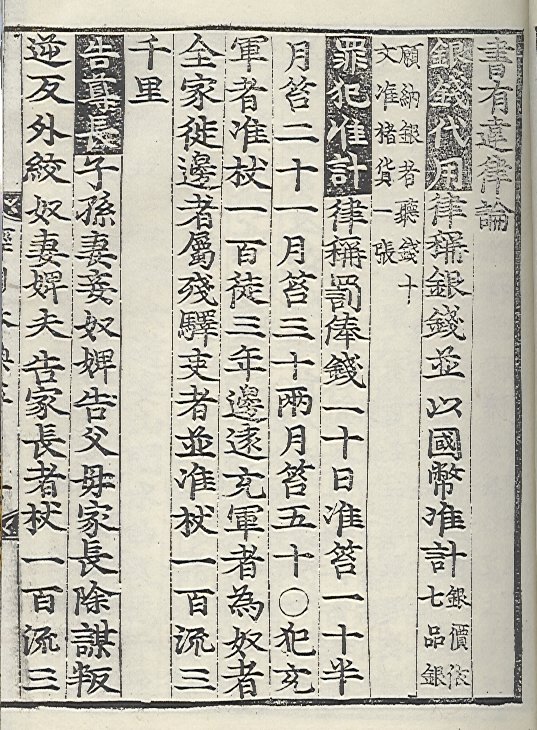 書有違律論
銀錢代用律稱銀錢並以國幣准計銀價依
七品銀
願納銀者聽錢十
文准楮貨一張
罪犯准計律稱罰俸錢一十日准笞一十半
月笞二十一月笞三十兩月笞五十○犯充
軍者准杖一百徒三年邊遠充軍者為奴者
全家徙邊者屬殘驛吏者並准杖一百流三
千里
告尊長子孫妻妾奴婢告父母家長除謀叛
逆反外絞奴妻婢夫告家長者杖一百流三